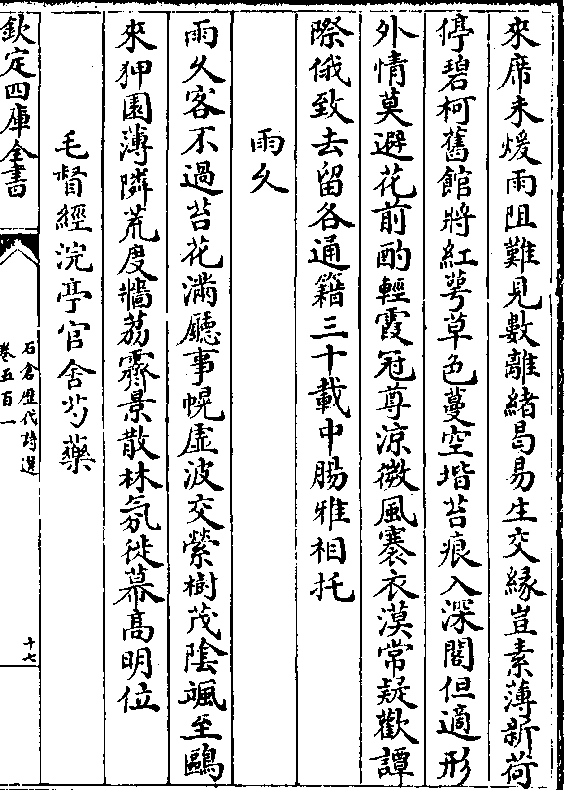 來席未煖雨阻難見數離緒曷易生交縁豈素薄新荷
停碧柯舊館將紅萼草色蔓空堦苔痕入深閣但適形
外情莫避花前酌輕霞冠尊涼微風褰衣漠常疑歡譚
際俄致去留各通籍三十載中腸雅相托
雨久
雨久客不過苔花滿廳事幌虛波交縈樹茂陰颯至鷗
來狎園薄隣荒度牆荔霽景散林氛徙幕高明位
毛督經浣亭官舍芍藥
欽定四庫全書
石倉歷代詩選
卷五百一
十七